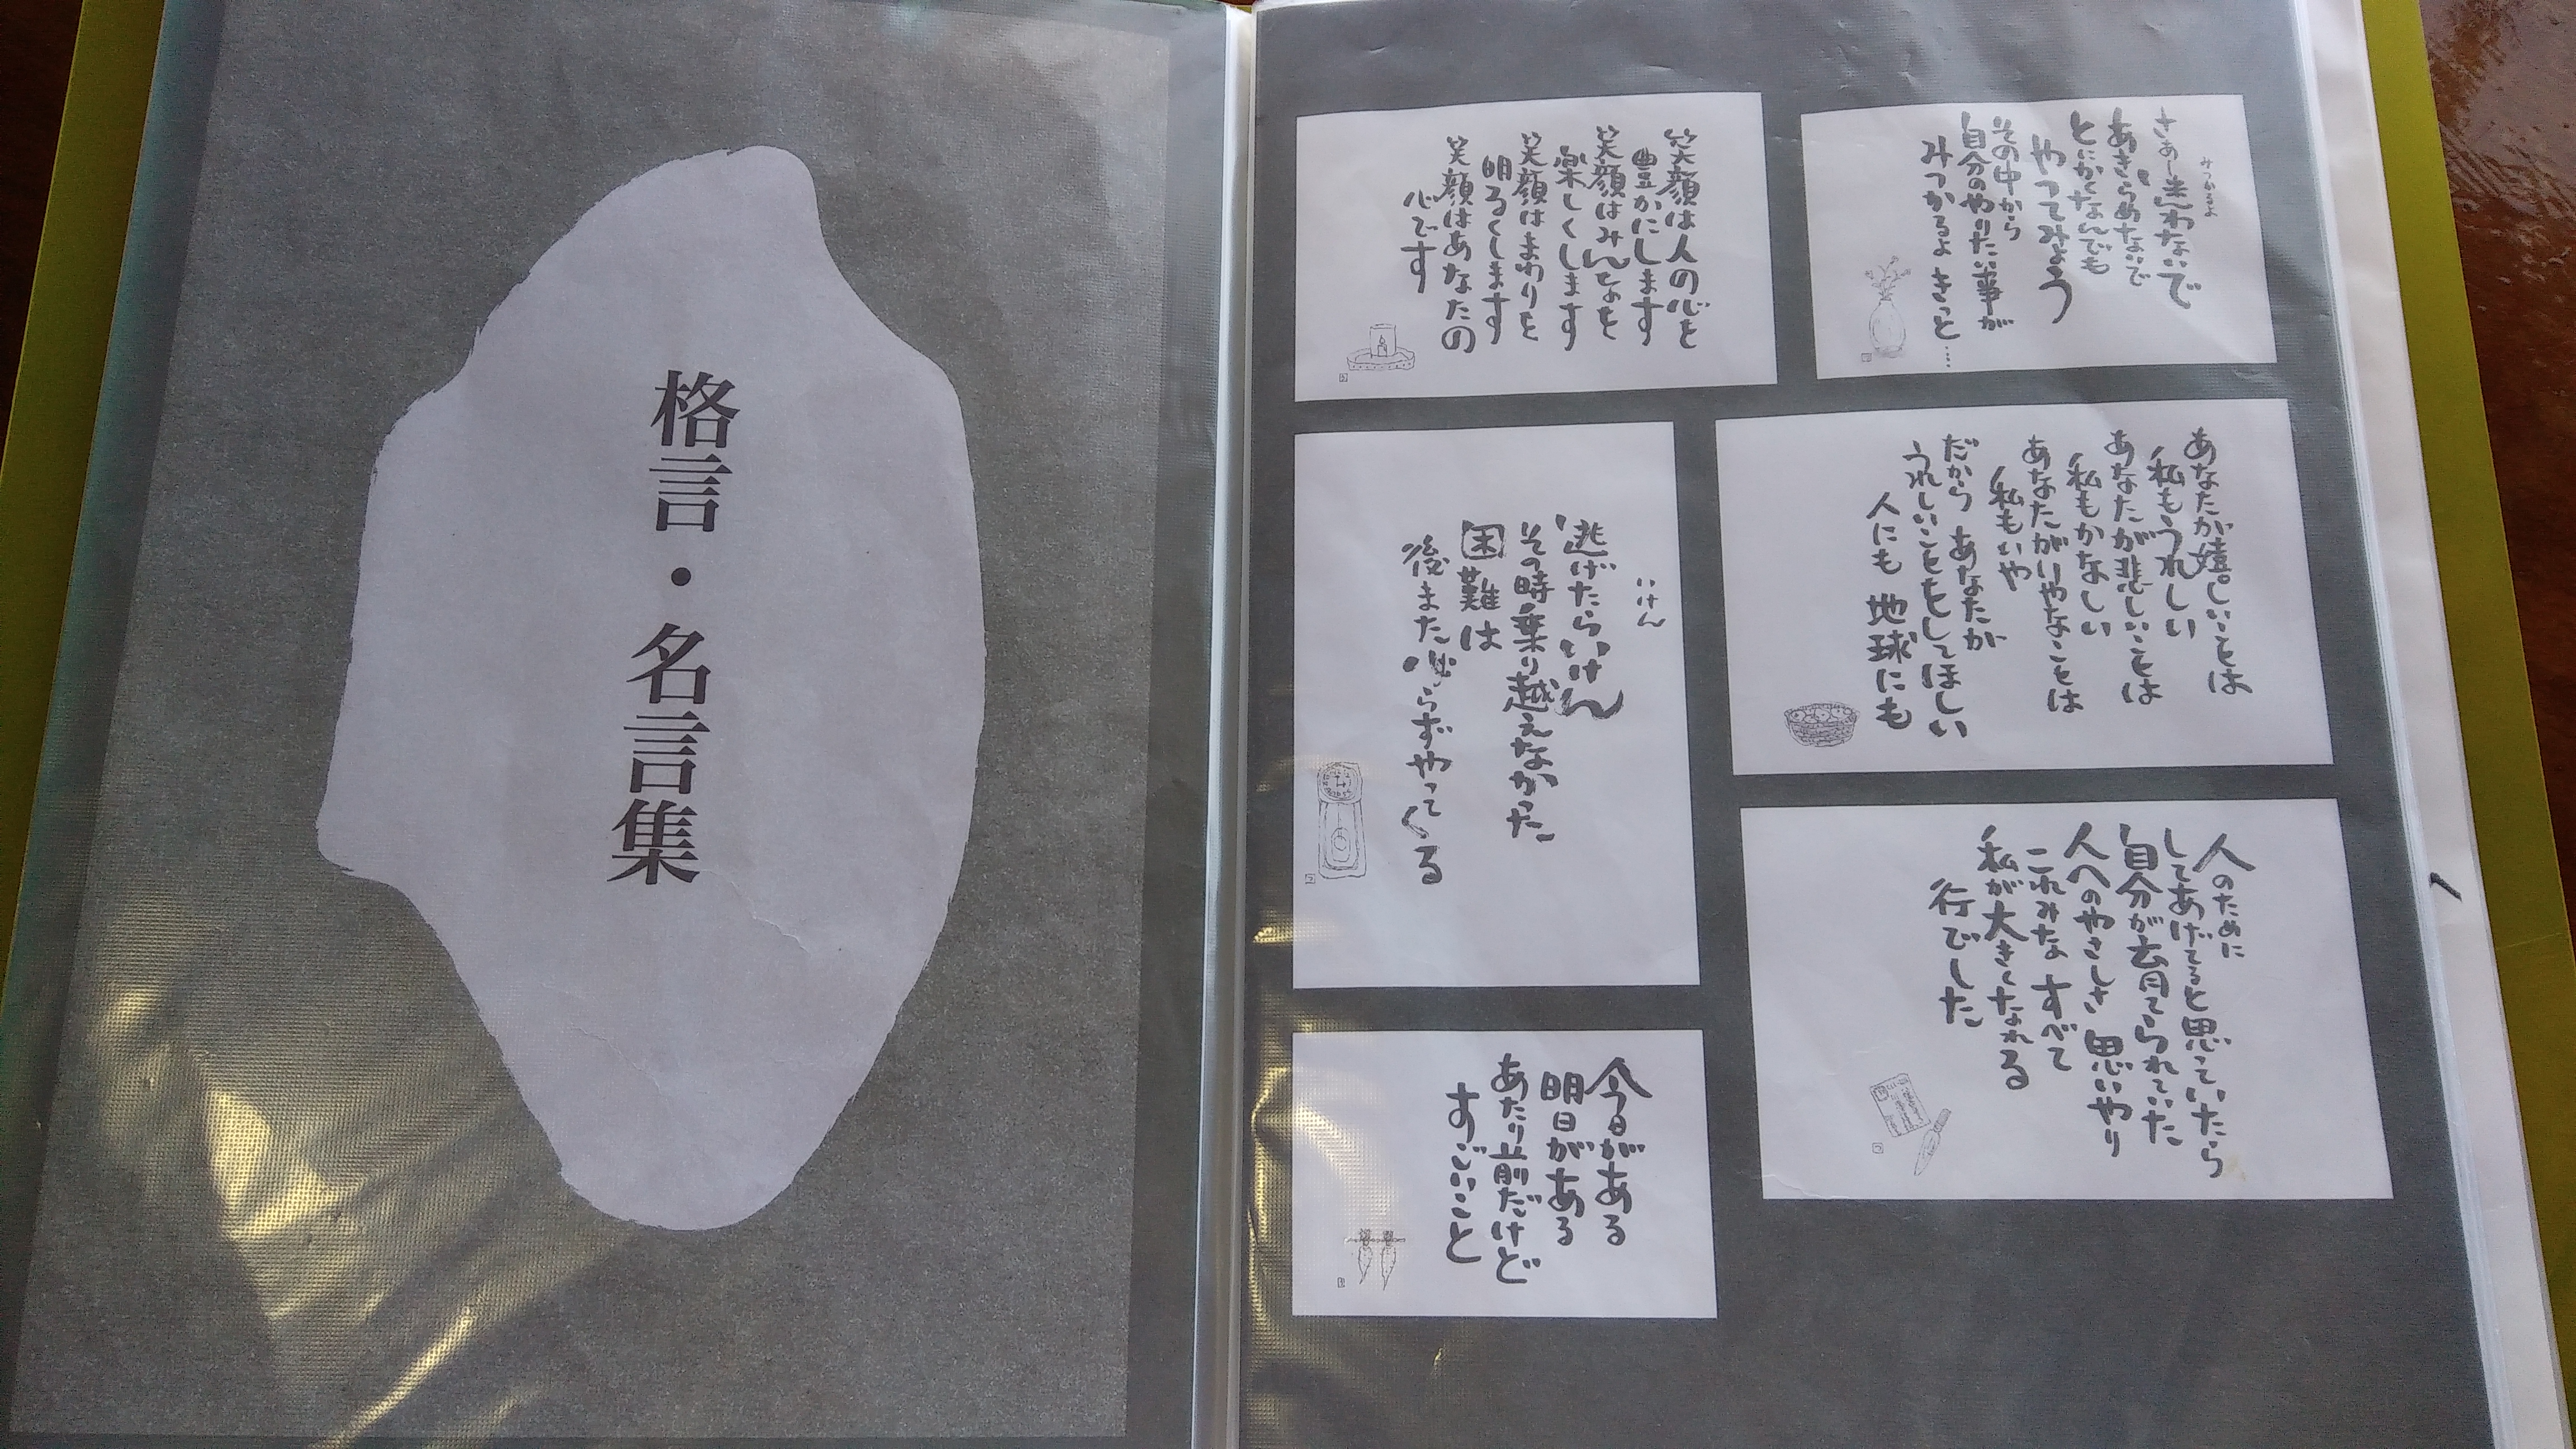 格言・名言集
みつかるよ
さあー迷わないで
あきらめないで
とにかくなんでも
やってみよう
その中から
自分のやりたい事が
みつかるよ きっと…
笑顔は人の心を
豊かにします
笑顔はみんなを
楽しくします
笑顔はまわりを
明るくします
笑顔はあなたの
心です
あなたが嬉しいことは
私もうれしい
あなたが悲しいことは
私もかなしい
あなたがいやなことは
私もいや
だから あなたが
うれしいことをしてほしい
人にも 地球にも
いけん
逃げたらいけん
その時乗り越えなかった
困難は
後また必らずやってくる
人のために
してあげてると思っていたら
自分が育てられていた
人へのやさしさ 思いやり
これみな すべて
私が大きくなれる
行でした
今日がある
明日がある
あたり前だけど
すごいこと